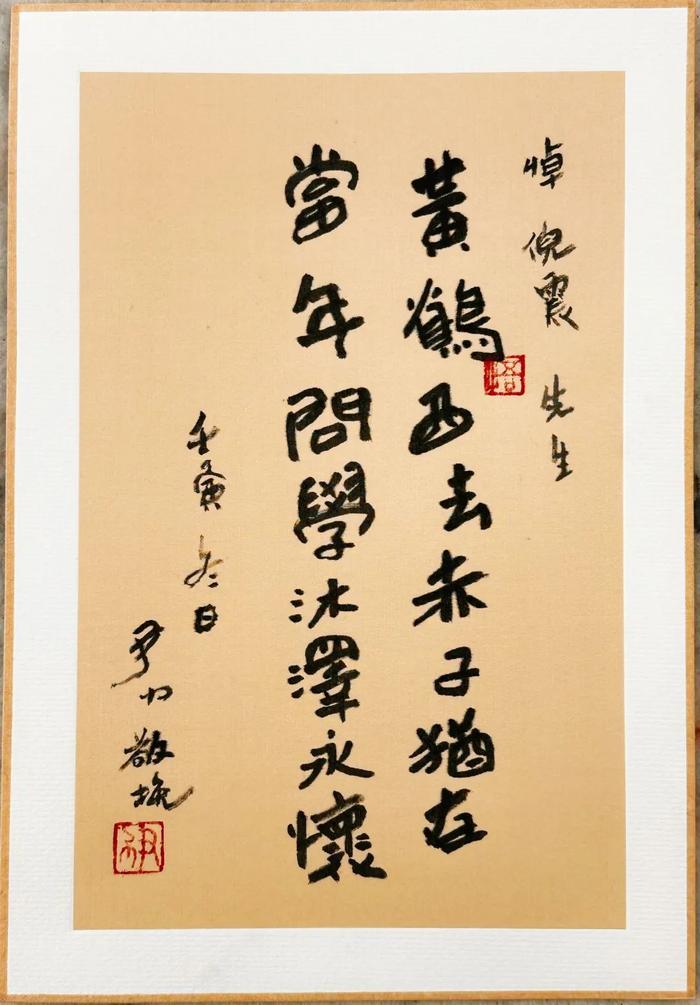 悼 倪霞 先生
黃鶴西去赤子猶在
當年問學沐澤永懷
壬寅冬日
敬挽